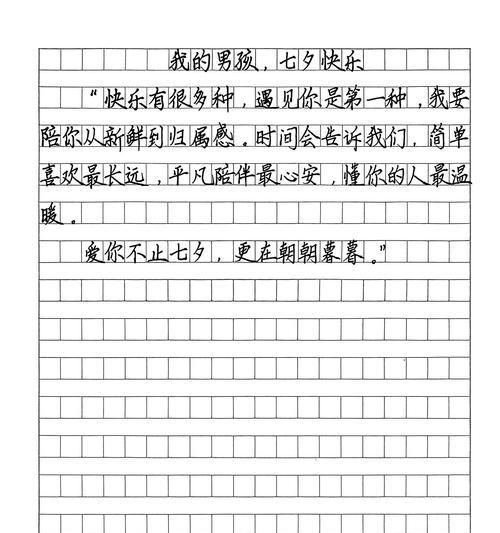 我的男孩，七夕快乐
“快乐有很多种，遇见你是第一种，我要
陪你从新鲜到归属感。时间会告诉我们，简单
喜欢最长远，平凡陪伴最心安，懂你的人最温
暖。
爱你不止七夕，更在朝朝暮暮。”